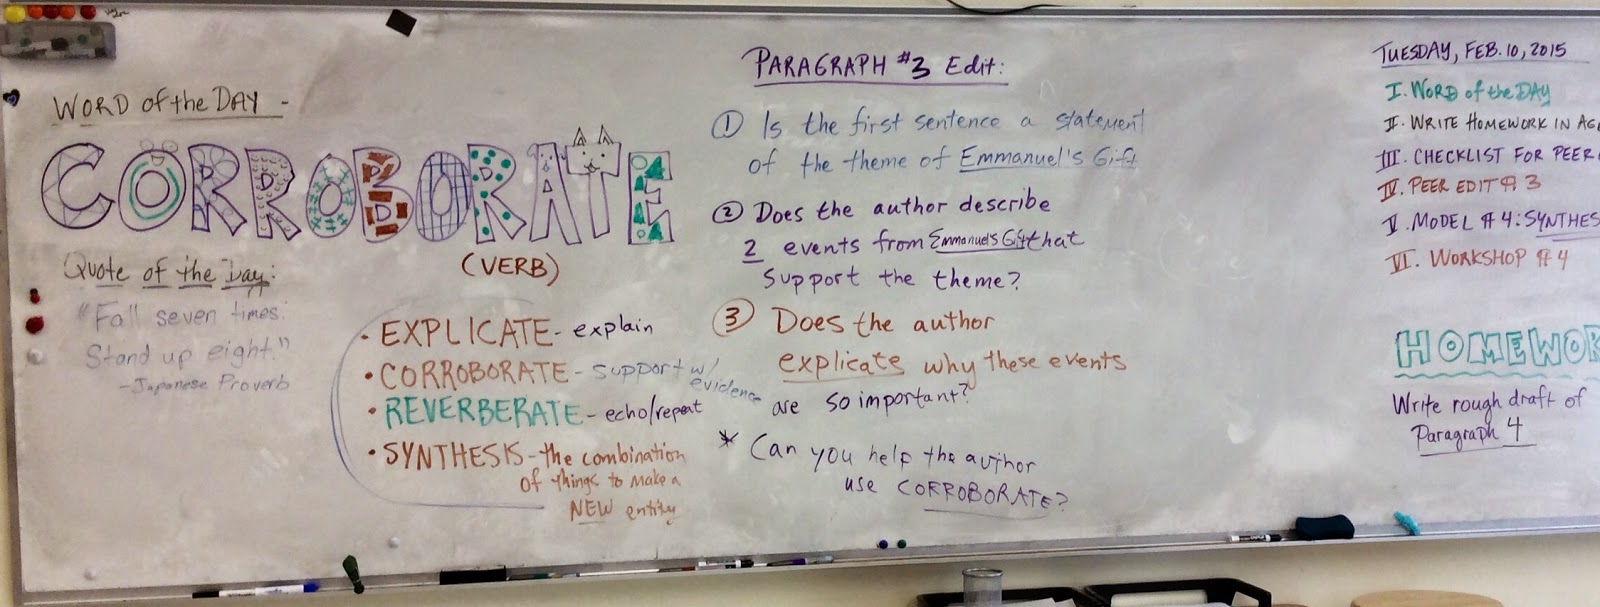 WORD of the DAY -
CORROBORATE
(VERB)
Quote of the Day:
"Fall seven times.
Stand up eight."
-Japanese Proverb
• EXPLICATE - explain
• CORROBORATE - support w/ evidence
• REVERBERATE - echo/repeat
• SYNTHESIS - the combination
of things to make a
NEW entity
PARAGRAPH #3 Edit:
① Is the first sentence a statement
of the theme of Emmanuel's Gift
② Does the author describe
2 events from Emmanuel's Gift that
support the theme?
③ Does the author
explicate why these events
are so important?
* Can you help the author
use CORROBORATE?
TUESDAY, FEB. 10, 2015
I. WORD of the DAY
II. WRITE HOMEWORK IN AG
III. CHECKLIST FOR PEER
IV. PEER EDIT # 3
V. MODEL # 4: SYNTHES
VI. WORKSHOP # 4
HOMEWOR
Write rough draft of
Paragraph 4